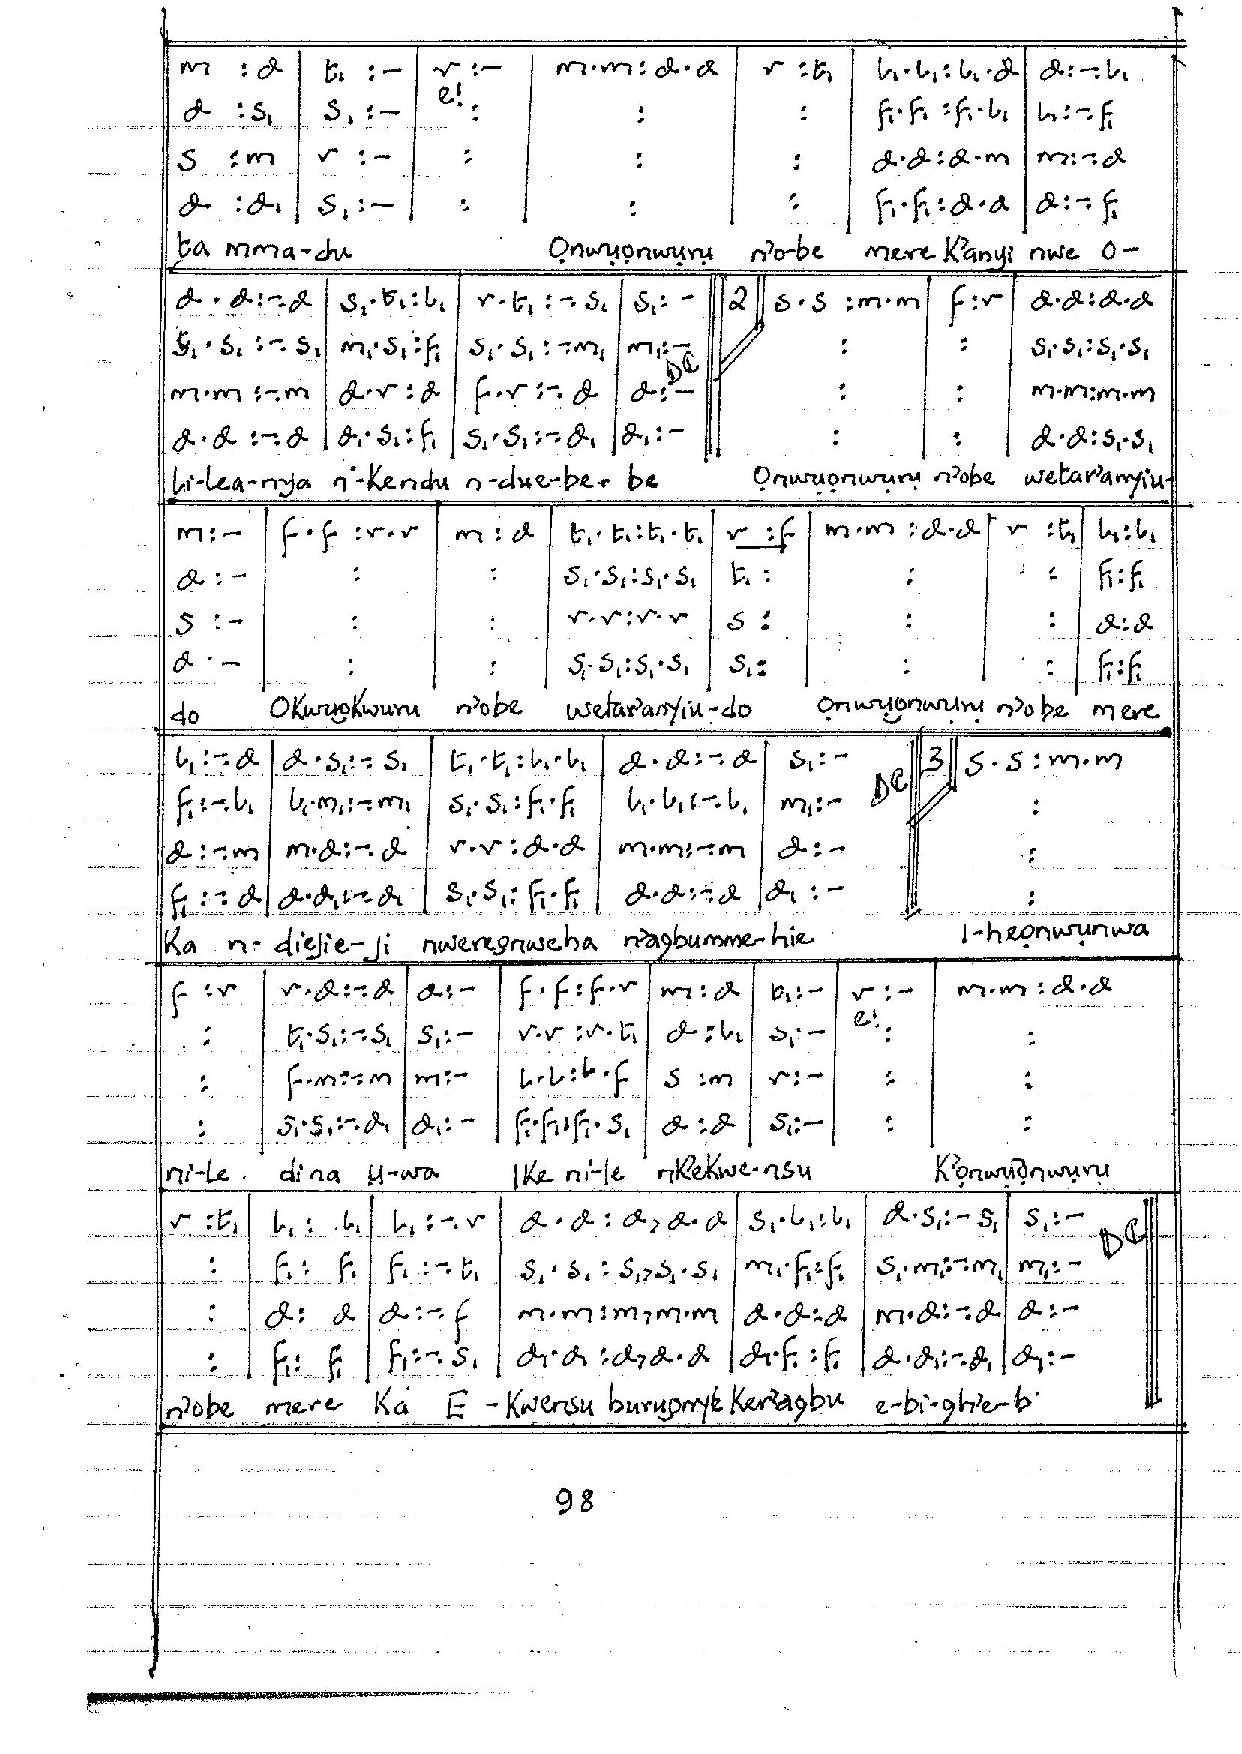 m :d | t₁ :- | r :- | m.m : d.d | r :t₁ | l₁.l₁ : l₁.d | d :-.l₁
d :s₁ | s₁ :- | e! : | : | : | f₁.f₁ : f₁.l₁ | l₁ :-.f₁
s :m | r :- | : | : | : | d.d : d.m | m :-.d
d :d₁ | s₁ :- | : | : | : | f₁.f₁ : d.d | d :-.f₁
ta mma-du Ọnwụọnwụrụ n'o-be mere K'anyi nwe o-
d.d :-.d | s₁.t₁ : l₁ | r.t₁ :-.s₁ | s₁ :- || 2 || s.s : m.m | f : r | d.d : d.d
s₁.s₁ :-.s₁ | m₁.s₁ : f₁ | s₁.s₁ :-.m₁ | m₁ :- DC || : | : | s₁.s₁ : s₁.s₁
m.m :-.m | d.r : d | f.r :-.d | d :- || : | : | m.m : m.m
d.d :-.d | d₁.s₁ : f₁ | s₁.s₁ :-.d₁ | d₁ :- || : | : | d.d : s₁.s₁
li-lea-nya n'-Kendu n-due-be-be Ọnwụọnwụrụ n'obe wetar'anyiu-
m :- | f.f : r.r | m : d | t₁.t₁ : t₁.t₁ | r : f | m.m : d.d | r : t₁ | l₁ : l₁
d :- | : | : | s₁.s₁ : s₁.s₁ | t₁ : | : | : | f₁ : f₁
s :- | : | : | r.r : r.r | s : | : | : | d : d
d :- | : | : | s₁.s₁ : s₁.s₁ | s₁ : | : | : | f₁ : f₁
do n'obe wetar'anyiu-do Ọnwụọnwụrụ n'obe mere
l₁ :-.d | d.s₁ :-.s₁ | t₁.t₁ : l₁.l₁ | d.d :-.d | s₁ :- DC || 3 || s.s : m.m
f₁ :-.l₁ | l₁.m₁ :-.m₁ | s₁.s₁ : f₁.f₁ | l₁.l₁ :-.l₁ | m₁ :- || :
d :-.m | m.d :-.d | r.r : d.d | m.m :-.m | d :- || :
f₁ :-.d | d.d₁ :-.d₁ | s₁.s₁ : f₁.f₁ | d.d :-.d | d₁ :- || :
Ka n-diejie-ji n'agbumme-hie I-heọnwụnwa
f : r | r.d :-.d | d :- | f.f : f.r | m : d | t₁ :- | r :- | m.m : d.d
: | t₁.s₁ :-.s₁ | s₁ :- | r.r : r.t₁ | d : l₁ | s₁ :- | e! : | :
: | f.m :-.m | m :- | l.l : l.f | s : m | r :- | : | :
: | s₁.s₁ :-.d₁ | d₁ :- | f₁.f₁ : f₁.s₁ | d : d | s₁ :- | : | :
ni-le. di na ụ-wa Ike ni-le nk'eKwe-nsu K'ọnwụọnwụrụ
r : t₁ | l₁ : .l₁ | l₁ :-.r | d.d : d,d.d | s₁.l₁ : l₁ | d.s₁ :-.s₁ | s₁ :- DC
: | f₁ : f₁ | f₁ :-.t₁ | s₁.s₁ : s₁,s₁.s₁ | m₁.f₁ : f₁ | s₁.m₁ :-.m₁ | m₁ :-
: | d : d | d :-.f | m.m : m,m.m | d.d : d | m.d :-.d | d :-
: | f₁ : f₁ | f₁ :-.s₁ | d₁.d₁ : d,d.d | d₁.f₁ : f₁ | d.d₁ :-.d₁ | d₁ :-
n'obe mere Ka E-Kwensu Ker'agbu e-bi-ghi'e-b'
98